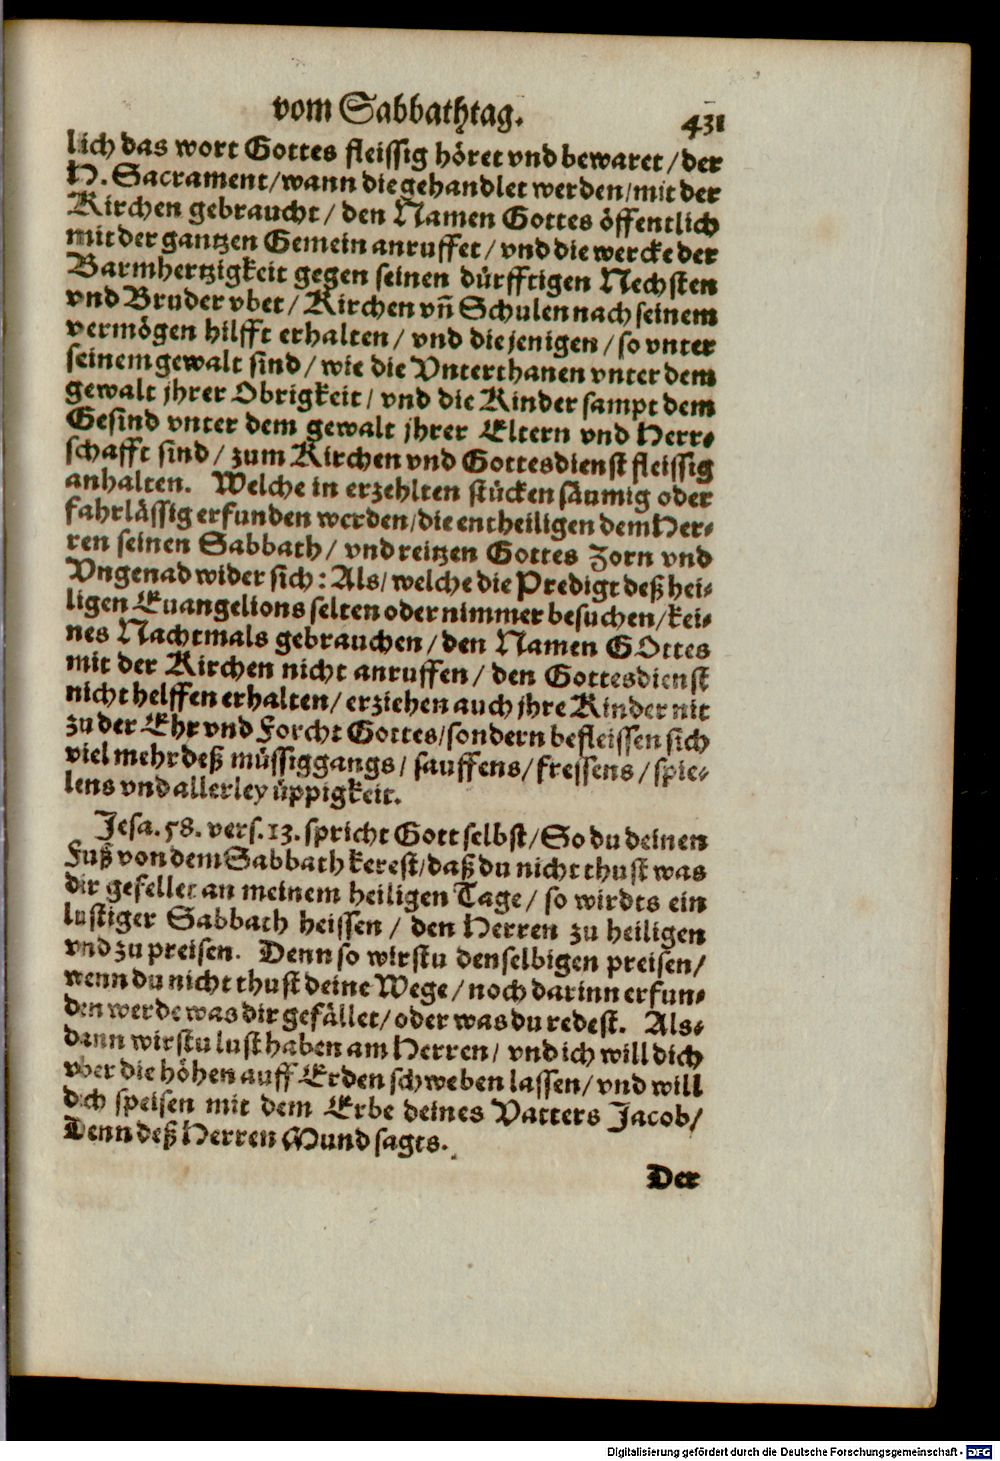 vom Sabbathtag. 431
lich das wort Gottes fleissig höret vnd bewaret / der
H. Sacrament / wann die gehandlet werden / mit der
Kirchen gebraucht / den Namen Gottes öffentlich
mit der gantzen Gemein anruffet / vnd die wercke der
Barmhertzigkeit gegen seinen dürfftigen Nechsten
vnd Bruder vbet / Kirchen vñ Schulen nach seinem
vermögen hilfft erhalten / vnd die jenigen / so vnter
seinem gewalt sind / wie die Vnterthanen vnter dem
gewalt jhrer Obrigkeit / vnd die Kinder sampt dem
Gesind vnter dem gewalt jhrer Eltern vnd Herr-
schafft sind / zum Kirchen vnd Gottesdienst fleissig
anhalten. Welche in erzehlten stücken säumig oder
fahrlässig erfunden werden / die entheiligen dem Her-
ren seinen Sabbath / vnd reitzen Gottes Zorn vnd
Vngenad wider sich : Als / welche die Predigt deß hei-
ligen Euangelions selten oder nimmer besuchen / kei-
nes Nachtmals gebrauchen / den Namen GOttes
mit der Kirchen nicht anruffen / den Gottesdienst
nicht helffen erhalten / erziehen auch jhre Kinder nit
zu der Ehr vnd Forcht Gottes / sondern befleissen sich
viel mehr deß müssiggangs / sauffens / fressens / spie-
lens vnd allerley üppigkeit.
Jesa. 58. vers. 13. spricht Gott selbst / So du deinen
Fuß von dem Sabbath kerest / daß du nicht thust was
dir gefellet an meinem heiligen Tage / so wirdts ein
lustiger Sabbath heissen / den Herren zu heiligen
vnd zu preisen. Denn so wirstu denselbigen preisen /
wenn du nicht thust deine Wege / noch darinn erfun-
den werde was dir gefället / oder was du redest. Als-
dann wirstu lust haben am Herren / vnd ich will dich
vber die höhen auff Erden schweben lassen / vnd will
dich speisen mit dem Erbe deines Vatters Jacob /
Denn deß Herren Mund sagts.
Der
Digitalisierung gefördert durch die Deutsche Forschungsgemeinschaft - DFG